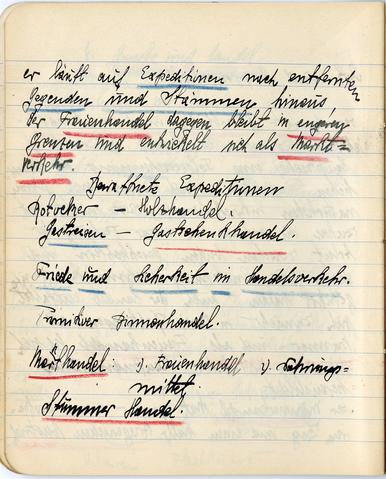 er läuft auf Expeditionen nach entfernten
Gegenden und Stämmen hinaus,
der Frauenhandel dagegen bleibt in engeren
Grenzen und entwickelt sich als Markt-
verkehr.
Expeditionen
– Holzhandel.
Gastreisen – Gastgeschenkhandel.
Friede und Sicherheit im Handelsverkehr.
Primitiver Binnenhandel.
Markthandel: 1) Frauenhandel 2) Nahrungs-
mittel.
Stummer Handel.